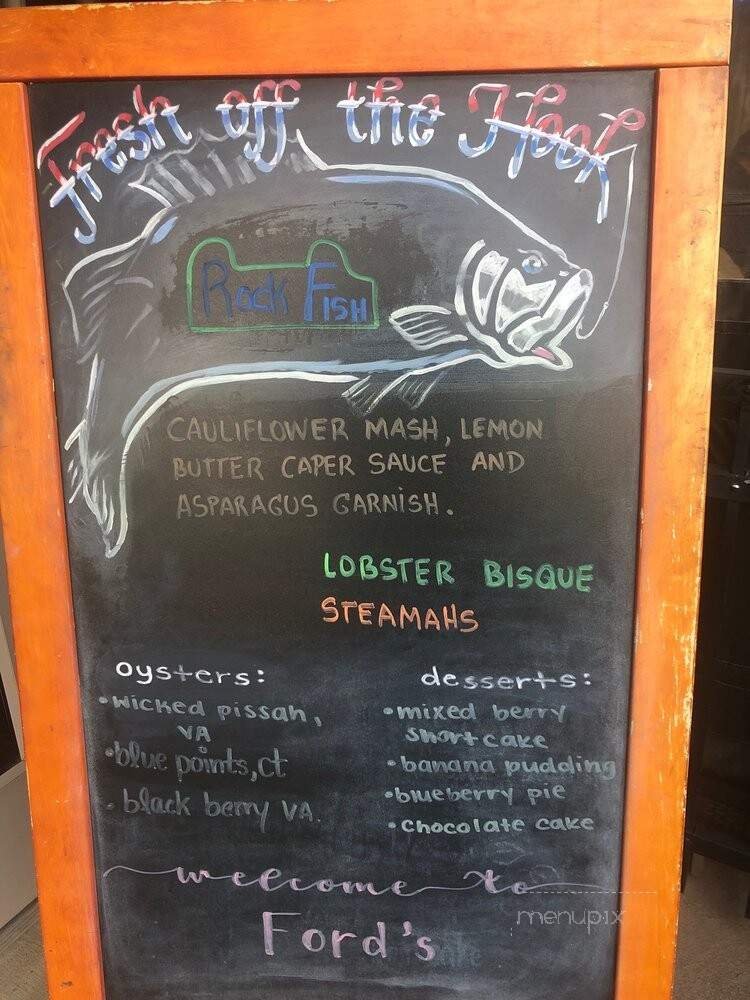 Fresh off the Hook
Rock FISH
CAULIFLOWER MASH, LEMON
BUTTER CAPER SAUCE AND
ASPARAGUS GARNISH.
LOBSTER BISQUE
STEAMAHS
oysters:
• wicked pissah,
VA
• blue points, ct
• black berry VA.
desserts:
• mixed berry
short cake
• banana pudding
• blueberry pie
• chocolate cake
welcome to
Ford's
menupix